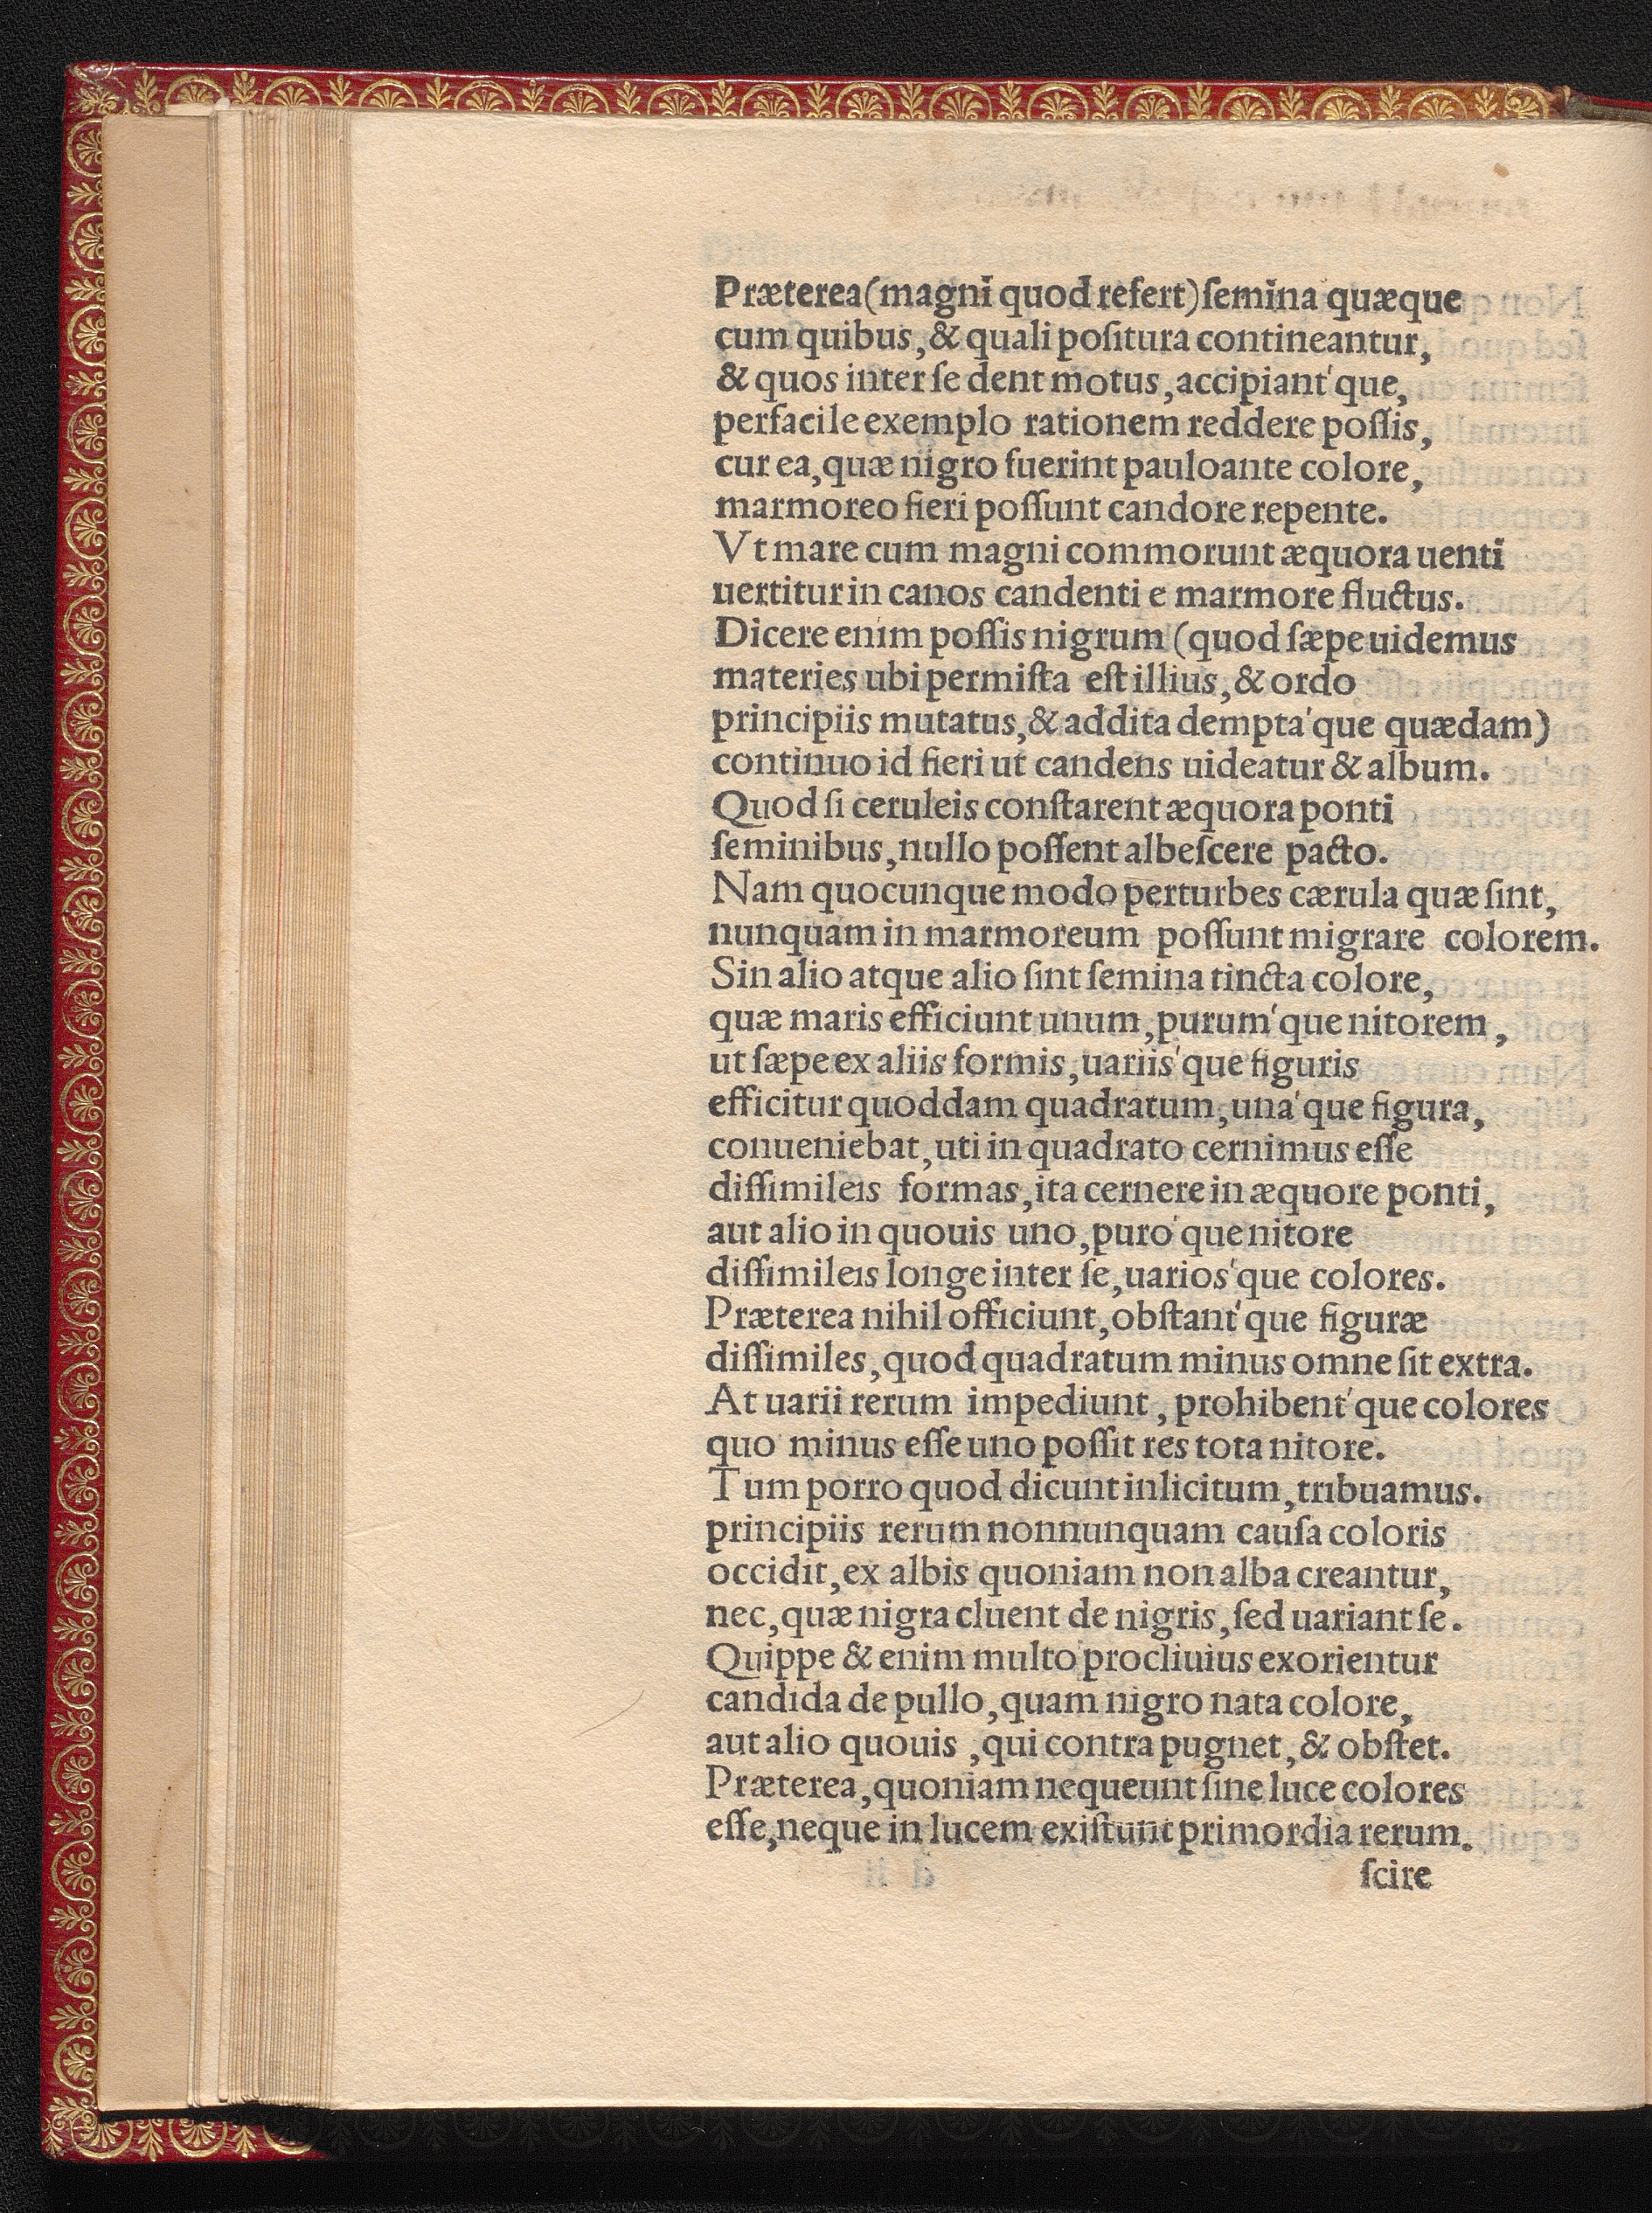 Præterea(magni quod refert)ſemina quæque
cum quibus,& quali poſitura contineantur,
& quos inter ſe dent motus,accipiant'que,
perfacile exemplo rationem reddere poſſis,
cur ea,quæ nigro fuerint pauloante colore,
marmoreo fieri poſſunt candore repente.
Vt mare cum magni commorunt æquora uenti
uertitur in canos candenti e marmore fluctus.
Dicere enim poſſis nigrum (quod ſæpe uidemus
materies ubi permiſta eſt illius,& ordo
principiis mutatus,& addita dempta'que quædam)
continuo id fieri ut candens uideatur & album.
Quod ſi ceruleis conſtarent æquora ponti
ſeminibus,nullo poſſent albeſcere pacto.
Nam quocunque modo perturbes cærula quæ ſint,
nunquam in marmoreum poſſunt migrare colorem.
Sin alio atque alio ſint ſemina tincta colore,
quæ maris efficiunt unum,purum'que nitorem,
ut ſæpe ex aliis formis,uariis'que figuris
efficitur quoddam quadratum,una'que figura,
conueniebat,uti in quadrato cernimus eſſe
diſſimileis formas,ita cernere in æquore ponti,
aut alio in quouis uno,puro'que nitore
diſſimileis longe inter ſe,uarios'que colores.
Præterea nihil officiunt,obſtant'que figuræ
diſſimiles,quod quadratum minus omne ſit extra.
At uarii rerum impediunt,prohibent'que colores
quo minus eſſe uno poſſit res tota nitore.
Tum porro quod dicunt inlicitum,tribuamus.
principiis rerum nonnunquam cauſa coloris
occidit,ex albis quoniam non alba creantur,
nec,quæ nigra cluent de nigris,ſed uariant ſe.
Quippe & enim multo procliuius exorientur
candida de pullo,quam nigro nata colore,
aut alio quouis ,qui contra pugnet,& obſtet.
Præterea,quoniam nequeunt ſine luce colores
eſſe,neque in lucem exiſtunt primordia rerum.
ſcire